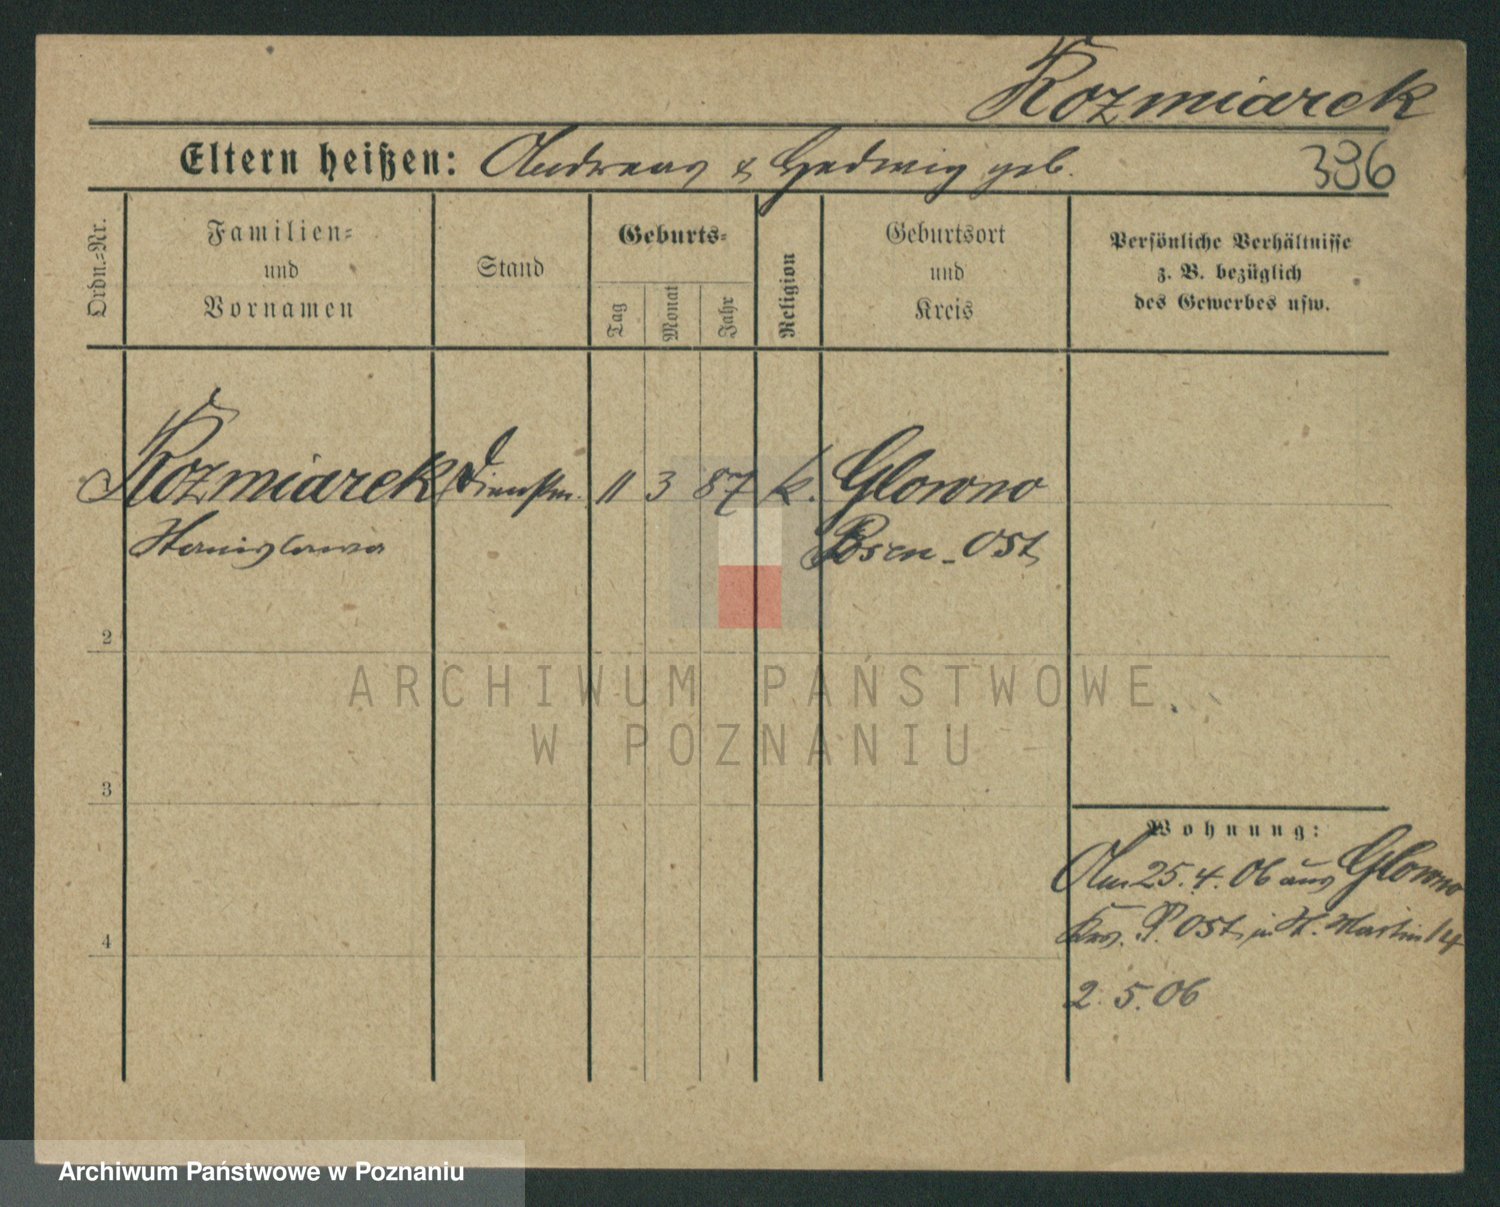 Kozmiarek
Eltern heißen: Andreas & Hedwig geb.
386
Ordn.=Nr.
Familien=
und
Vornamen
Stand
Geburts=
Tag
Monat
Jahr
Religion
Geburtsort
und
Kreis
Persönliche Verhältnisse
z. B. bezüglich
des Gewerbes usw.
Kozmiarek Dienstm. 11 3 87 k. Glowno
Stanislawa Posen-Ost
2
3
4
Wohnung:
Am 25.4.06 aus Glowno
Krs. P. Ost, in St. Martin 14
2.5.06
ARCHIWUM PAŃSTWOWE
W POZNANIU
Archiwum Państwowe w Poznaniu